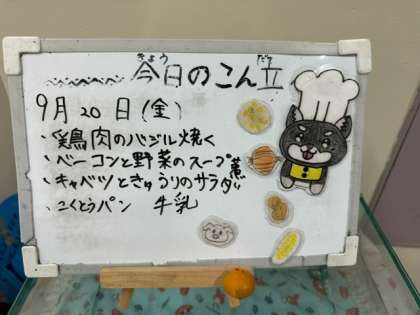 今日のこん立
きょう だて
9月20日(金)
・鶏肉のバジル焼く
・ベーコンと野菜のスープ煮
・キャベツときゅうりのサラダ
・こくとうパン 牛乳